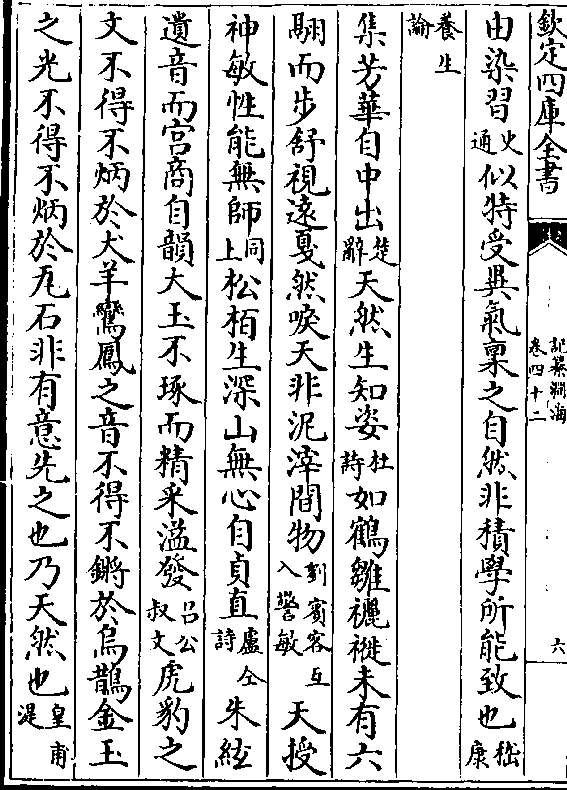 欽定四庫全書
記纂淵海
卷四十二
六
由染習史通似特受異氣稟之自然非積學所能致也嵇康
養生論
集芳華自中出楚辭天然生知姿杜詩如鶴雛襹褷未有六
翮而步舒視遠戛然唳天非泥滓間物劉賓客互入警敏天授
神敏性能無師同上松栢生深山無心自貞直盧仝詩朱絃
遺音而宮商自韻大玉不琢而精采溢發呂公叔文虎豹之
文不得不炳於犬羊鸞鳳之音不得不鏘於烏鵲金玉
之光不得不炳於瓦石非有意先之也乃天然也皇甫湜